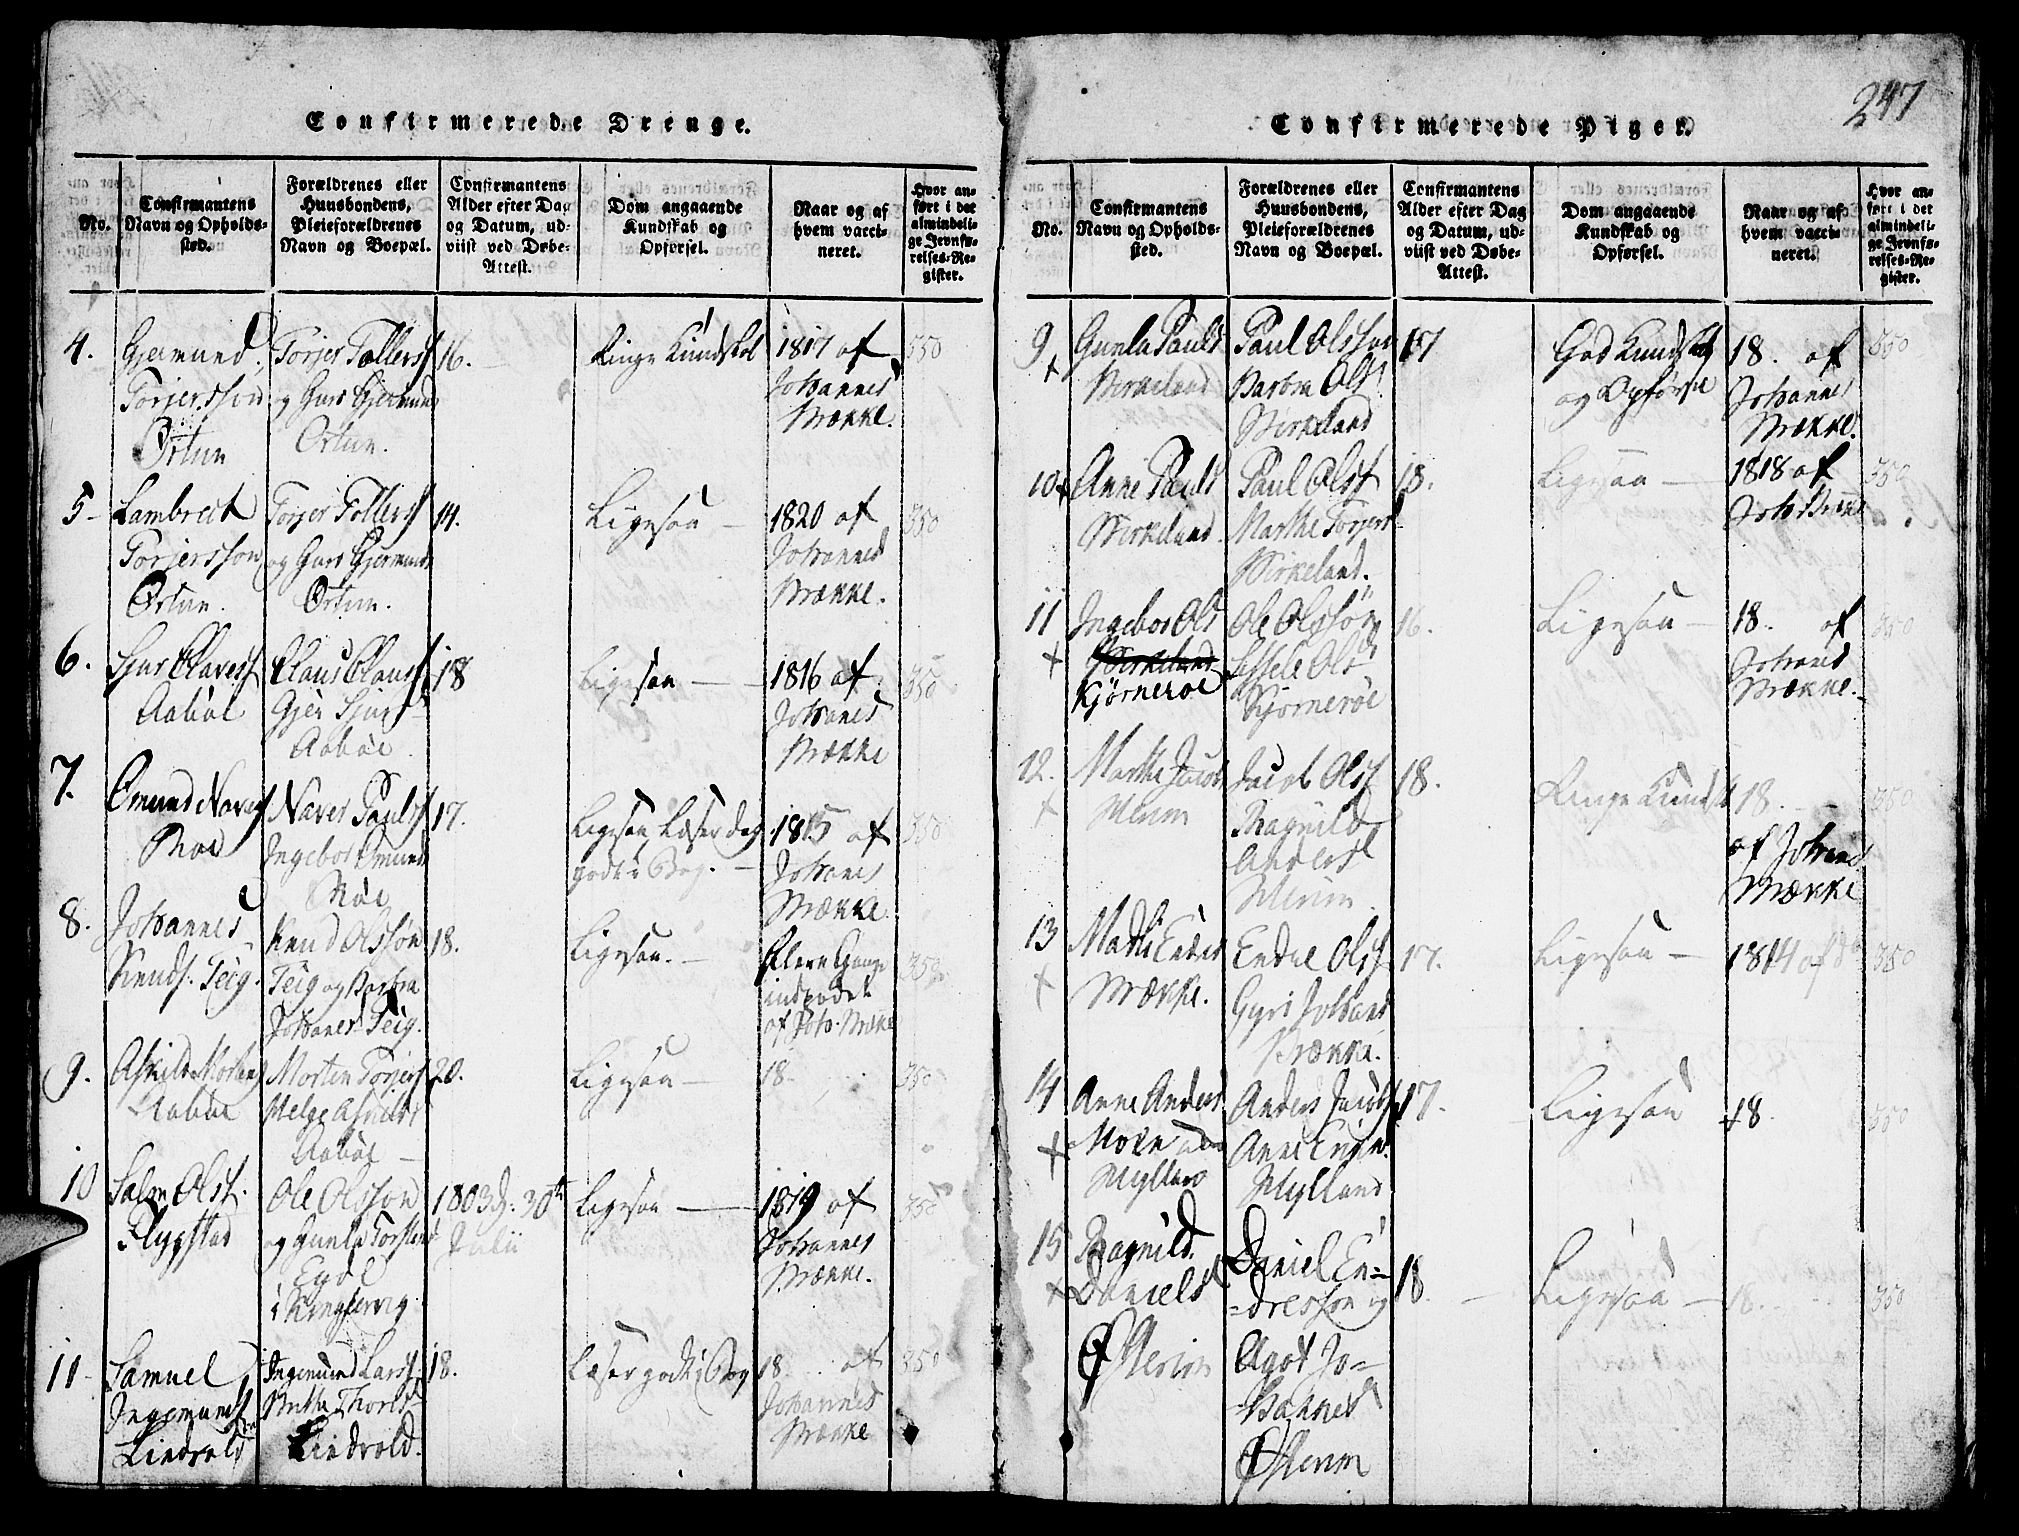 247
Confirmerede Drenge.
No.
Confirmantens
Navn og Opholds-
sted.
Forældrenes eller
Huusbondens,
Pleieforældrenes
Navn og Boepæl.
Confirmantens
Alder efter Dag
og Datum, ud-
viist ved Døbe-
Attest.
Dom angaaende
Kundskab og
Opførsel.
Naar og af
hvem vacci-
neret.
Hvor an-
ført i det
almindeli-
ge Jevnfø-
relses-Re-
gister.
4.
Gjermund
Torjersson
Østun
Torjer Tollerss
og Guro Gjermunds
Ostun.
16.
Ringe Kundskab
1817 af
Johannes
Brække.
350
5
Lambrect
Torjersson
Østun.
Torjer Tollerss
og Guro Gjermunds
Østun.
14.
Ligesaa
1820 af
Johannes
Brække.
350
6.
Sjur Clavess
Aabøe
Claus Clauss
Gjer Sjurs
Aabøe
18
Ligesaa
1816 af
Johanes
Brække
350
7.
Omund Navers
Moe
Naver Paulss
Ingebor Omunds
Moe
17.
Ligesaa, Læser dog
godt i Bog.
1815 af
Johanes
Brække
350
8.
Johannes
Knuds. Teig.
Knud Olsson
Teig og Barbra
Johanes Teig.
18.
Ligesaa.
flere Gange
indpodet
af Joh. Brække
350
9.
Askild Mortens
Aabøe
Morten Torjers
Helge Askilds
Aabøe
20.
Ligesaa
18.
350
10
Salom Olss.
Flygstad
Ole Olsson
og Gunla Torstens
Eyde
i Kingservig
1803 d. 30te
Julii
Ligesaa
1819 af
Johannes
Brække.
350
11
Samuel
Ingemunds
Lindvold
Ingemund Larss
Birthe Thorls
Lindvold.
18.
Læser godt i Bog
18. af
Johannes
Brække
350
Confirmerede Piger.
No.
Confirmantens
Navn og Opholds-
sted.
Forældrenes eller
Huusbondens,
Pleieforældrenes
Navn og Boepæl.
Confirmantens
Alder efter Dag
og Datum, ud-
viist ved Døbe-
Attest.
Dom angaaende
Kundskab og
Opførsel.
Naar og af
hvem vacci-
neret.
Hvor an-
ført i det
almindeli-
ge Jevnfø-
relses-Re-
gister.
9
Gunla Pauls
Birkeland
Paul Olsson
Barbra Ols
Birkeland
17
God Kundskab
og Opførsel
18. af
Johannes
Brække.
350
10
Anne Pauls
Birkeland.
Paul Olss
Marthe Torjers
Birkeland.
18.
Ligesaa
1818 af
Joh. Brække
350
11
Ingebor Ols
Birkeland
Kjørnerøe
Ole Olssøn
Sissele Ols
Kjørnerøe
16.
Ligesaa
18. af
Johanes
Brække.
350
12.
Marthe Jacobs
Merim
Jacob Olss
Ragnild
Anders
Merim
18.
Ringe Kundsk
18.
af Johanes
Brække
350
13
Marthe Endes
Brække.
Endre Olss
Gyri Johans
Brække.
17.
Ligesaa
1814 af do
350
14
Anne Anders
Moen
Mylland
Anders Jacobs
Anne
Mylland
17.
Ligesaa
18.
350
15
Ragnild
Daniels
Ø Merim
Daniel En=
=dresson og
Agot Jo-
hannes
Ø Merim
18.
Ligesaa
18.
350